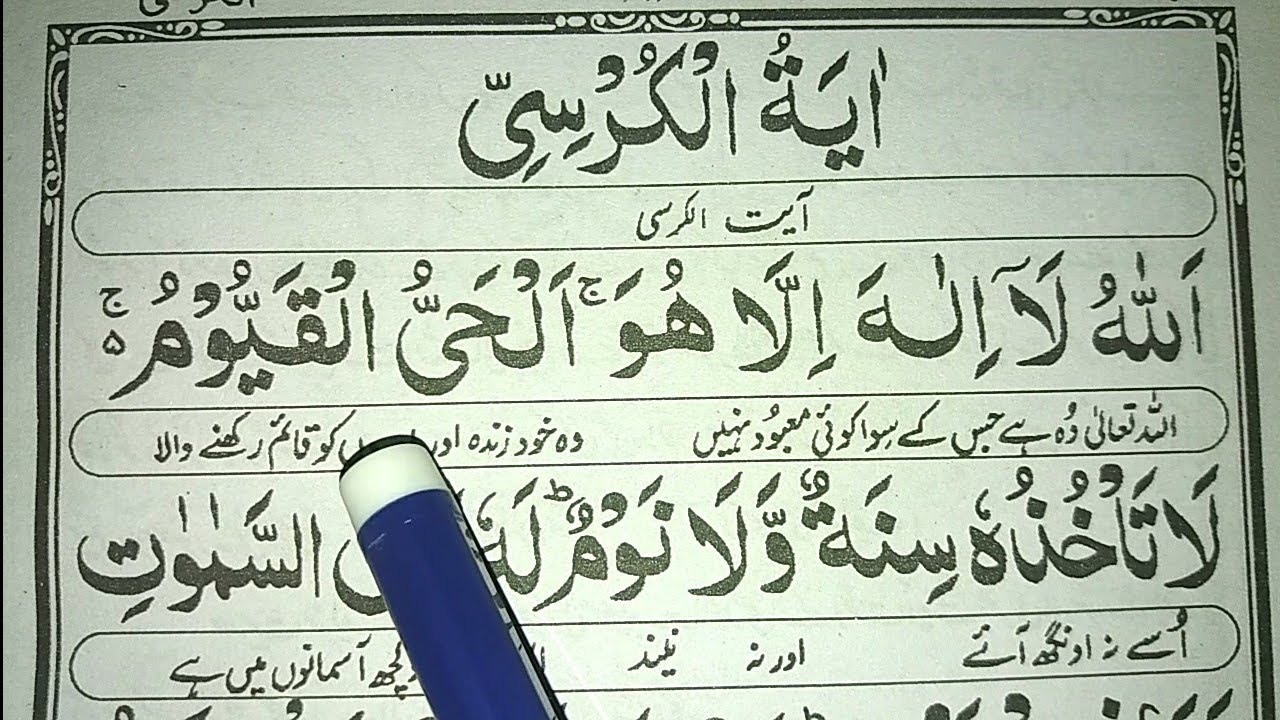 اٰيَةُ الْكُرْسِىِّ
آیت الکرسی
اَللّٰهُ لَآ اِلٰهَ اِلَّا هُوَ ۚ اَلْحَىُّ الْقَيُّوْمُ ۚ۵
اللہ تعالیٰ وُہ ہے جس کے سِوا کوئی معبُود نہیں وہ خود زندہ اور کو قائم رکھنے والا
لَا تَاْخُذُهٗ سِنَةٌ وَّلَا نَوْمٌ ؕ لَهٗ السَّمٰوٰتِ
اُسے نہ اونگھ آئے اور نہ نیند کچھ آسمانوں میں ہے